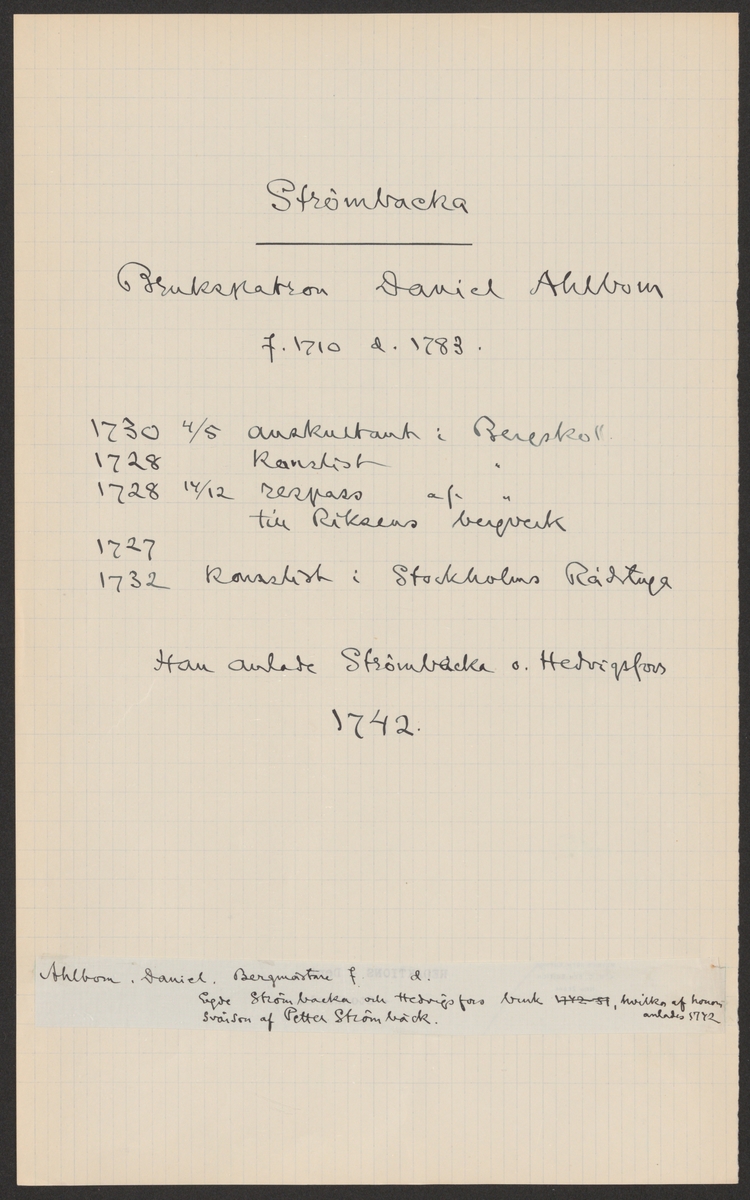 Strömbacka
Brukspatron Daniel Ahlbom
f. 1710 d. 1783.
1730 4/5 auskultant i Bergskoll.
1728 Kanslist "
1728 14/12 respass af "
till Riksens bergverk
1727
1732 Kanslist i Stockholms Rådstuga
Han anlade Strömbacka o. Hedvigsfors
1742.
Ahlbom, Daniel. Bergmästare f. d.
Egde Strömbacka och Hedvigsfors bruk 1742-51, hvilka af honom
anlades 1742
svärson af Petter Strömbäck.